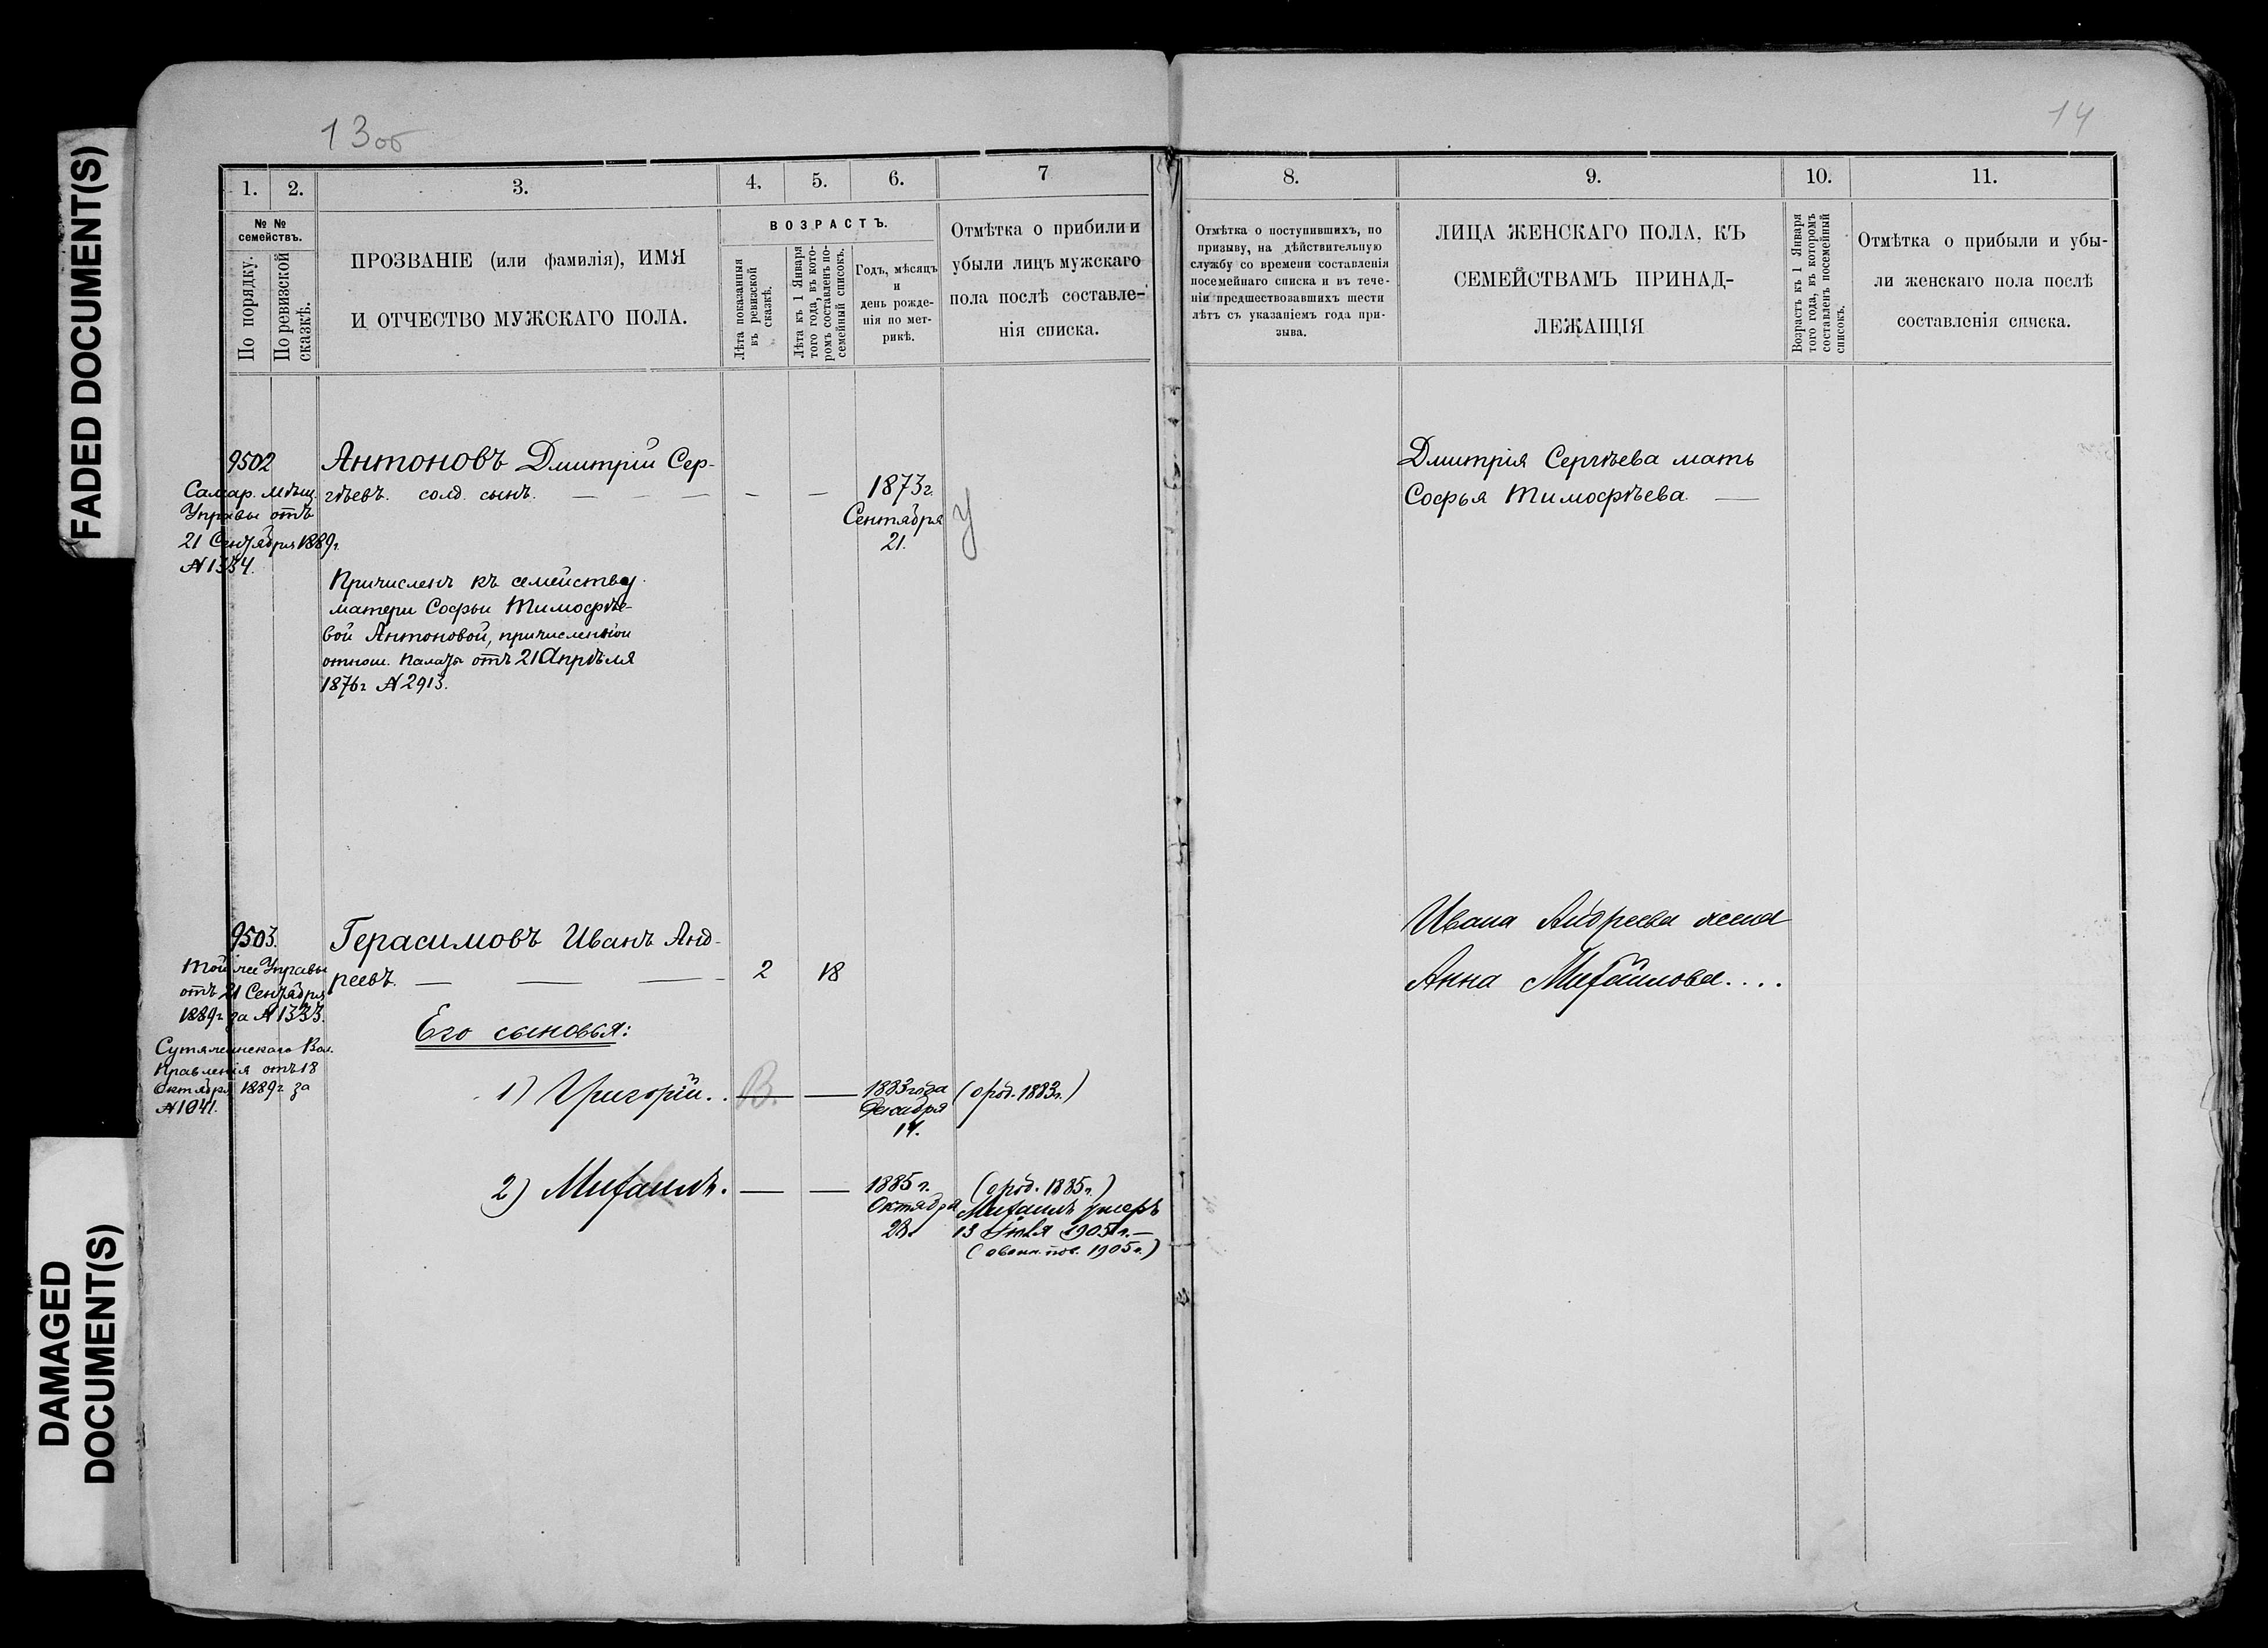 FADED DOCUMENT(S)
DAMAGED
DOCUMENT(S)
13об
1.
2.
3.
4.
5.
6.
7
№ №
семействъ.
По порядку.
По ревизской
сказкѣ.
ПРОЗВАНІЕ (или фамилія), ИМЯ
И ОТЧЕСТВО МУЖСКАГО ПОЛА.
ВОЗРАСТЪ.
Лѣта показанныя
въ ревизской
сказкѣ.
Лѣта къ 1 Января
того года, въ кото-
ромъ составленъ по-
семейный списокъ.
Годъ, мѣсяцъ
и
день рожде-
нія по мет-
рикѣ.
Отмѣтка о прибыли и
убыли лицъ мужскаго
пола послѣ составле-
нія списка.
9502
Самар. мѣщ.
Управы отъ
21 Сентября 1889г.
№ 1334.
Антоновъ Дмитрій Сер-
гѣевъ. солд. сынъ. — — — — —
1873г.
Сентября
21.
у
Причисленъ къ семейству
матери Софьи Тимофѣе-
вой Антоновой, причисленной
отнош. Палаты отъ 21 Апрѣля
1876г № 2913.
9503.
Той же Управы
отъ 21 Сентября
1889г за № 1333.
Вол.
Правленія отъ 18
Октября 1889г за
№ 1041.
Герасимовъ Иванъ Анд-
реевъ. — — — 2 18
Его сыновья:
1) Григорій. В. — — 1883 года (о род. 1883г.)
Декабря
14.
2) Михаилъ. — — 1885 г. (о род. 1885г.)
Октября Михаилъ умеръ
28. 13 1905г. —
1905г.)
14
8.
9.
10.
11.
Отмѣтка о поступившихъ, по
призыву, на дѣйствительную
службу со времени составленія
посемейнаго списка и въ тече-
ніи предшествовавшихъ шести
лѣтъ съ указаніемъ года при-
зыва.
ЛИЦА ЖЕНСКАГО ПОЛА, КЪ
СЕМЕЙСТВАМЪ ПРИНАД-
ЛЕЖАЩІЯ
Возрастъ къ 1 Января
того года, въ которомъ
составленъ посемейный
списокъ.
Отмѣтка о прибыли и убы-
ли женскаго пола послѣ
составленія списка.
Дмитрія Сергѣева мать
Софья Тимофѣева. —
Ивана Андреева жена
Анна Михайлова....